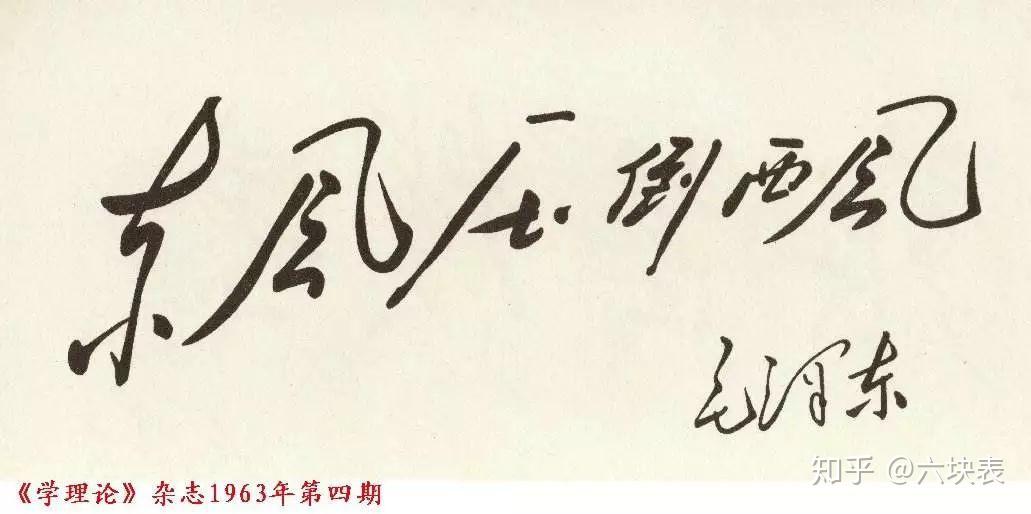 东风压倒西风
毛泽东
知乎 @六块表
《学理论》杂志1963年第四期